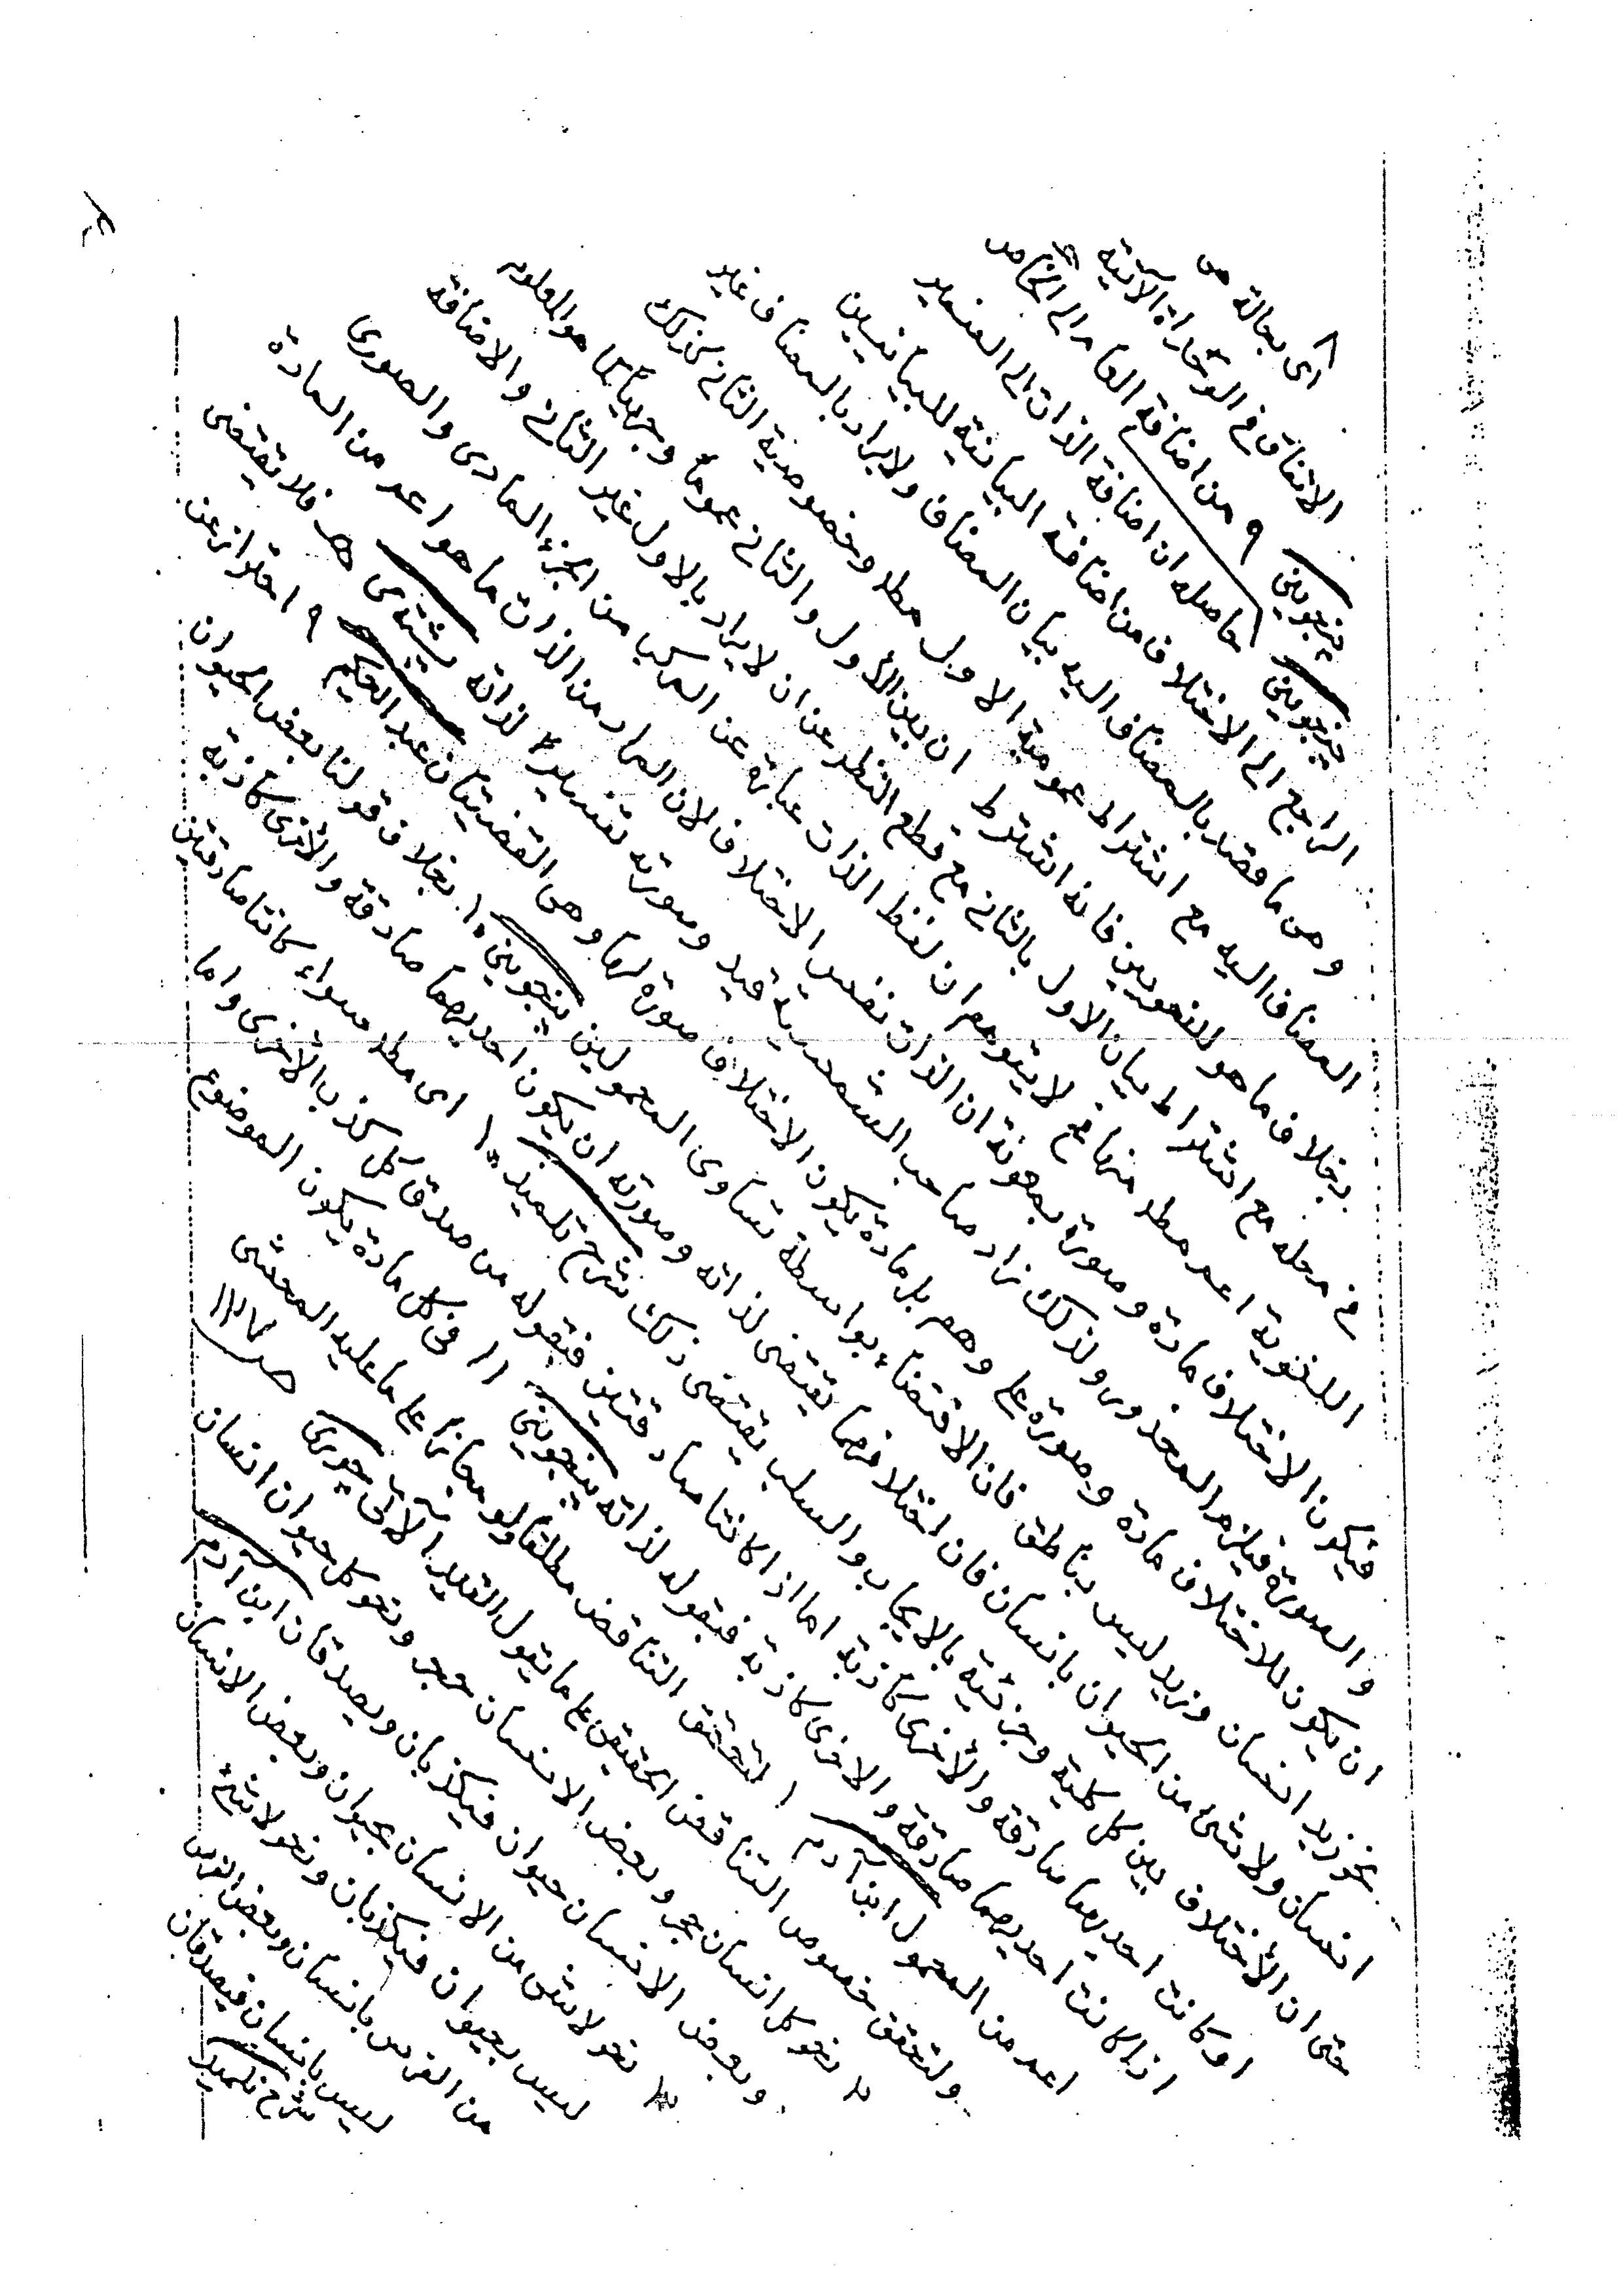 ٨ اى بحالة هى
الاتفاق فى الوحدات الآتية
پنجوينى ٩ من اضافة العام الى الخاص
پنجوينى حاصله ان اضافة الذات الى الضمير
الراجع الى الاختلاف من اضافة البيانية للبيانيين
وهى ما قصد بالمضاف اليه بيان المضاف ولا يراد بالمضاف غير
المضاف اليه مع اشتراط عمومية الاول مط وخصوصية الثانى كذلك
بخلاف ما هو للنحويين فانه اشترط ان بين الأول والثانى عموما وجهيا كما هو المعلوم
فى محله مع اشتراط بيان الاول بالثانى مع قطع النظر عن ان لا يراد بالاول غير الثانى والاضافة
اللغوية اعم مطلا منها فح لا يتوهم ان لفظ الذات عبارة عن المركب من الجزء المادى والصورى
فيكون الاختلاف مادة وصورة بمعونة ان الذات نفس الاختلاف لان المراد من الذات ما هو اعم من المادة
والصورة فيلزم المحذور ولذلك زاد صاحب الشمسية قيد وصورته تفسير لذاته هـ فلا يقتضى
ان يكون للاختلاف مادة وصورة على وهم بل مادة يكون الاختلاف صورة لها وهى القضيتان عبد الحكيم ٩ احتراز عن
نحو زيد انسان وزيد ليس بناطق فان الاقتضاء بواسطة تساوى المحمولين پنجوينى ١٠ بخلاف قولنا بعض الحيوان
انسان ولا شئ من الحيوان بانسان فان اختلافهما يقتضى لذاته وصورته ان يكون احديهما صادقة والأخرى كاذبة
حتى ان الأختلاف بين كل كلية وجزئية بالايجاب والسلب يقتضى ذلك شرح تلميذ ١٠ اى مط سواء كانتا صادقتين
او كانت احديهما صادقة والأخرى كاذبة اما اذا كانتا صادقتين فبقوله من صدق كل كذب بالأخرى واما
اذا كانت احديهما صادقة والاخرى كاذبة فبقوله لذاته پنجوينى ١١ فى كل مادة يكون الموضوع
اعم من المحمول ابن آدم ١ لتحقق التناقض مطلقا ولو مجازا على ما عليه المحشى
ولتحقق خصوص التناقض الحقيقى على ما يقول القيد الآتى جورى صـ ١٣٧
٢ نحو كل انسان حجر وبعض الانسان حجر ونحو كل حيوان انسان
وبعض الانسان حيوان فيكذبان ويصدقان ابن آدم
٣ نحو لا شئ من الانسان بحيوان وبعض الانسان
ليس بحيوان فيكذبان ونحو لا شئ
من الفرس بانسان وبعض الفرس
ليس بانسان فيصدقان
شرح تلميذ